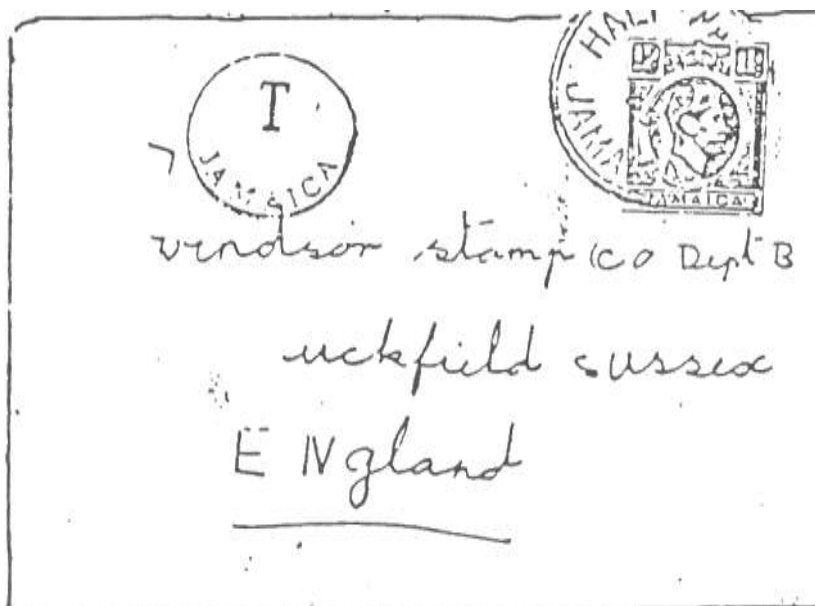 T
JAMAICA
HALF W
JAMA
JAMAICA
Windsor stamp CO Dept B
uckfield sussex
E Ngland